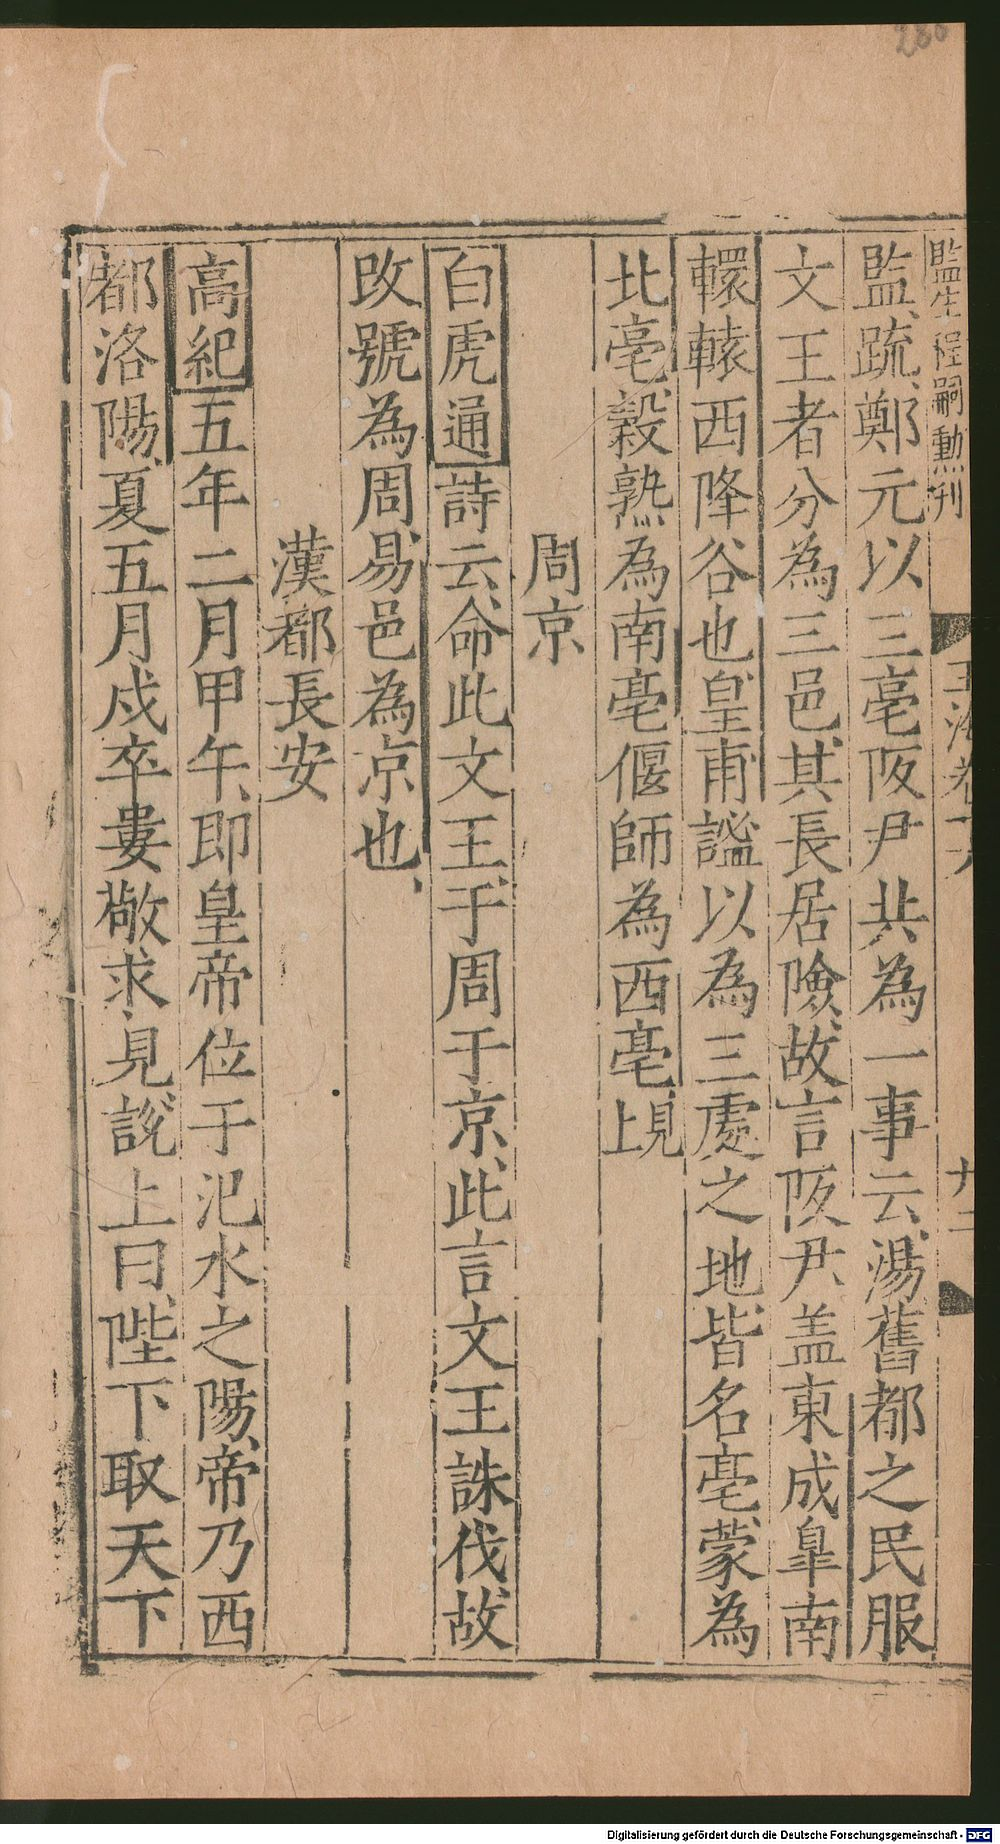 監生程嗣勲刊
玉海卷十六
十二
監疏鄭元以三亳阪尹共為一事云湯舊都之民服
文王者分為三邑其長居險故言阪尹盖東成臯南
轘轅西降谷也皇甫謐以為三處之地皆名亳蒙為
北亳糓熟為南亳偃師為西亳見上
周京
白虎通詩云命此文王于周于京此言文王誅伐故
改號為周易邑為京也
漢都長安
高紀五年二月甲午即皇帝位于汜水之陽帝乃西
都洛陽夏五月戍卒婁敬求見說上曰陛下取天下
Digitalisierung gefördert durch die Deutsche Forschungsgemeinschaft - DFG